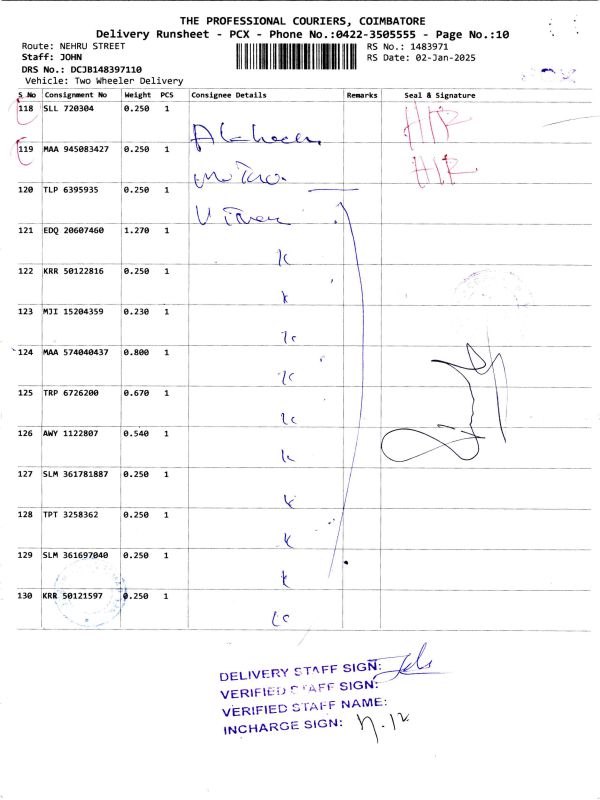 THE PROFESSIONAL COURIERS, COIMBATORE
Delivery Runsheet - PCX - Phone No.:0422-3505555 - Page No.:10
Route: NEHRU STREET RS No.: 1483971
Staff: JOHN RS Date: 02-Jan-2025
DRS No.: DCJB148397110
Vehicle: Two Wheeler Delivery
S No Consignment No Weight PCS Consignee Details Remarks Seal & Signature
118 SLL 720304 0.250 1
119 MAA 945083427 0.250 1
120 TLP 6395935 0.250 1
121 EDQ 20607460 1.270 1
122 KRR 50122816 0.250 1
123 MJI 15204359 0.230 1
124 MAA 574040437 0.800 1
125 TRP 6726200 0.670 1
126 AWY 1122807 0.540 1
127 SLM 361781887 0.250 1
128 TPT 3258362 0.250 1
129 SLM 361697040 0.250 1
130 KRR 50121597 0.250 1
DELIVERY STAFF SIGN:
VERIFIED STAFF SIGN:
VERIFIED STAFF NAME:
INCHARGE SIGN: